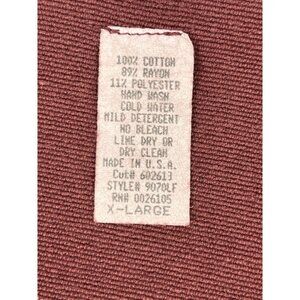 100% COTTON
89% RAYON
11% POLYESTER
HAND WASH
COLD WATER
MILD DETERGENT
NO BLEACH
LINE DRY OR
DRY CLEAN
MADE IN U.S.A.
Cut# 602613
STYLE# 9070LF
RN# 0026105
X-LARGE